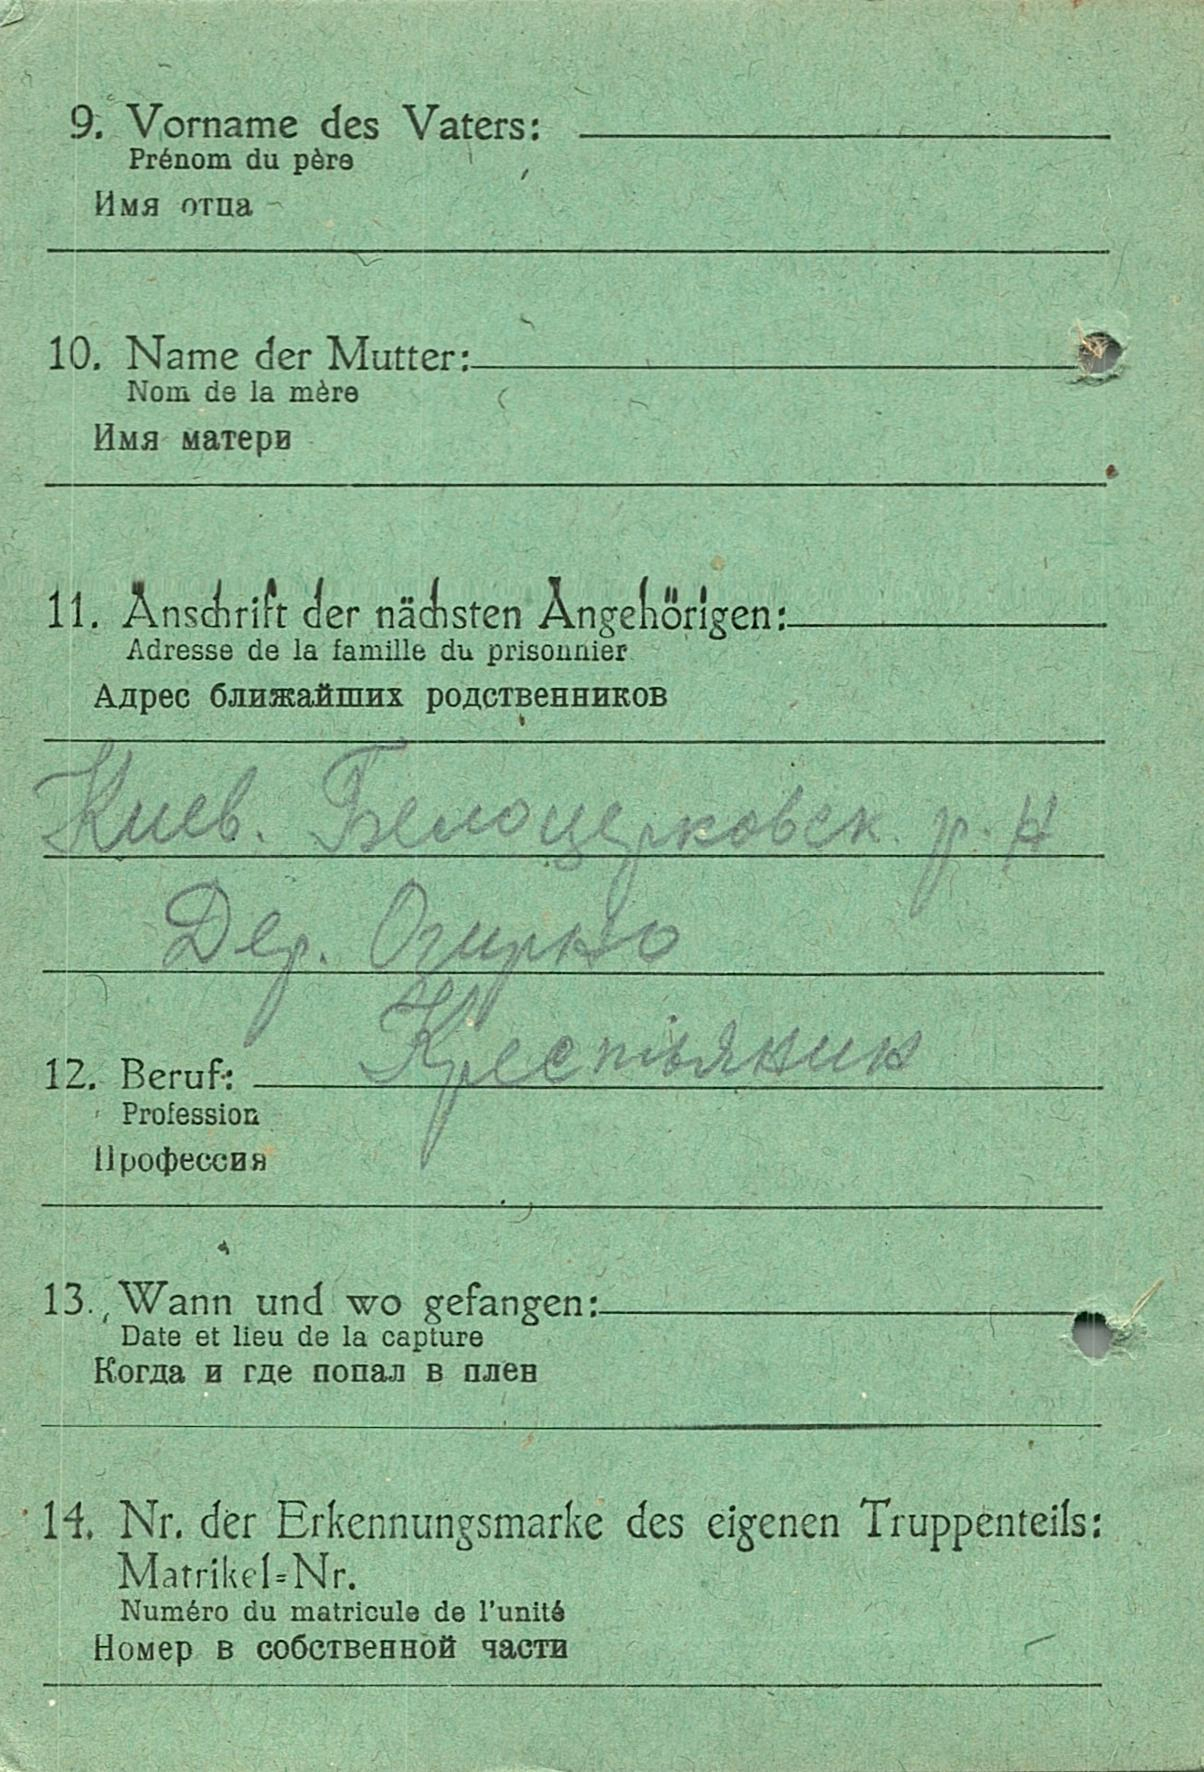 9. Vorname des Vaters:
Prénom du père
Имя отца
10. Name der Mutter:
Nom de la mère
Имя матери
11. Anschrift der nächsten Angehörigen:
Adresse de la famille du prisonnier
Адрес ближайших родственников
Киев. Белоцерковск. р. н
Дер. Огирко
Крестьяник
12. Beruf:
Profession
Профессия
13. Wann und wo gefangen:
Date et lieu de la capture
Когда и где попал в плен
14. Nr. der Erkennungsmarke des eigenen Truppenteils:
Matrikel=Nr.
Numéro du matricule de l'unité
Номер в собственной части